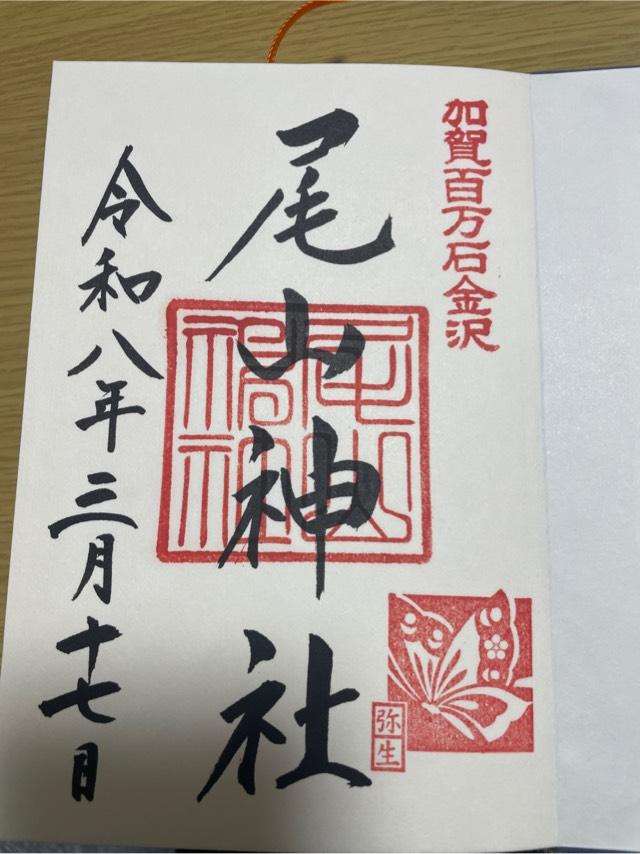 加賀百万石金沢
尾山神社
尾山神社
弥生
令和八年三月十七日